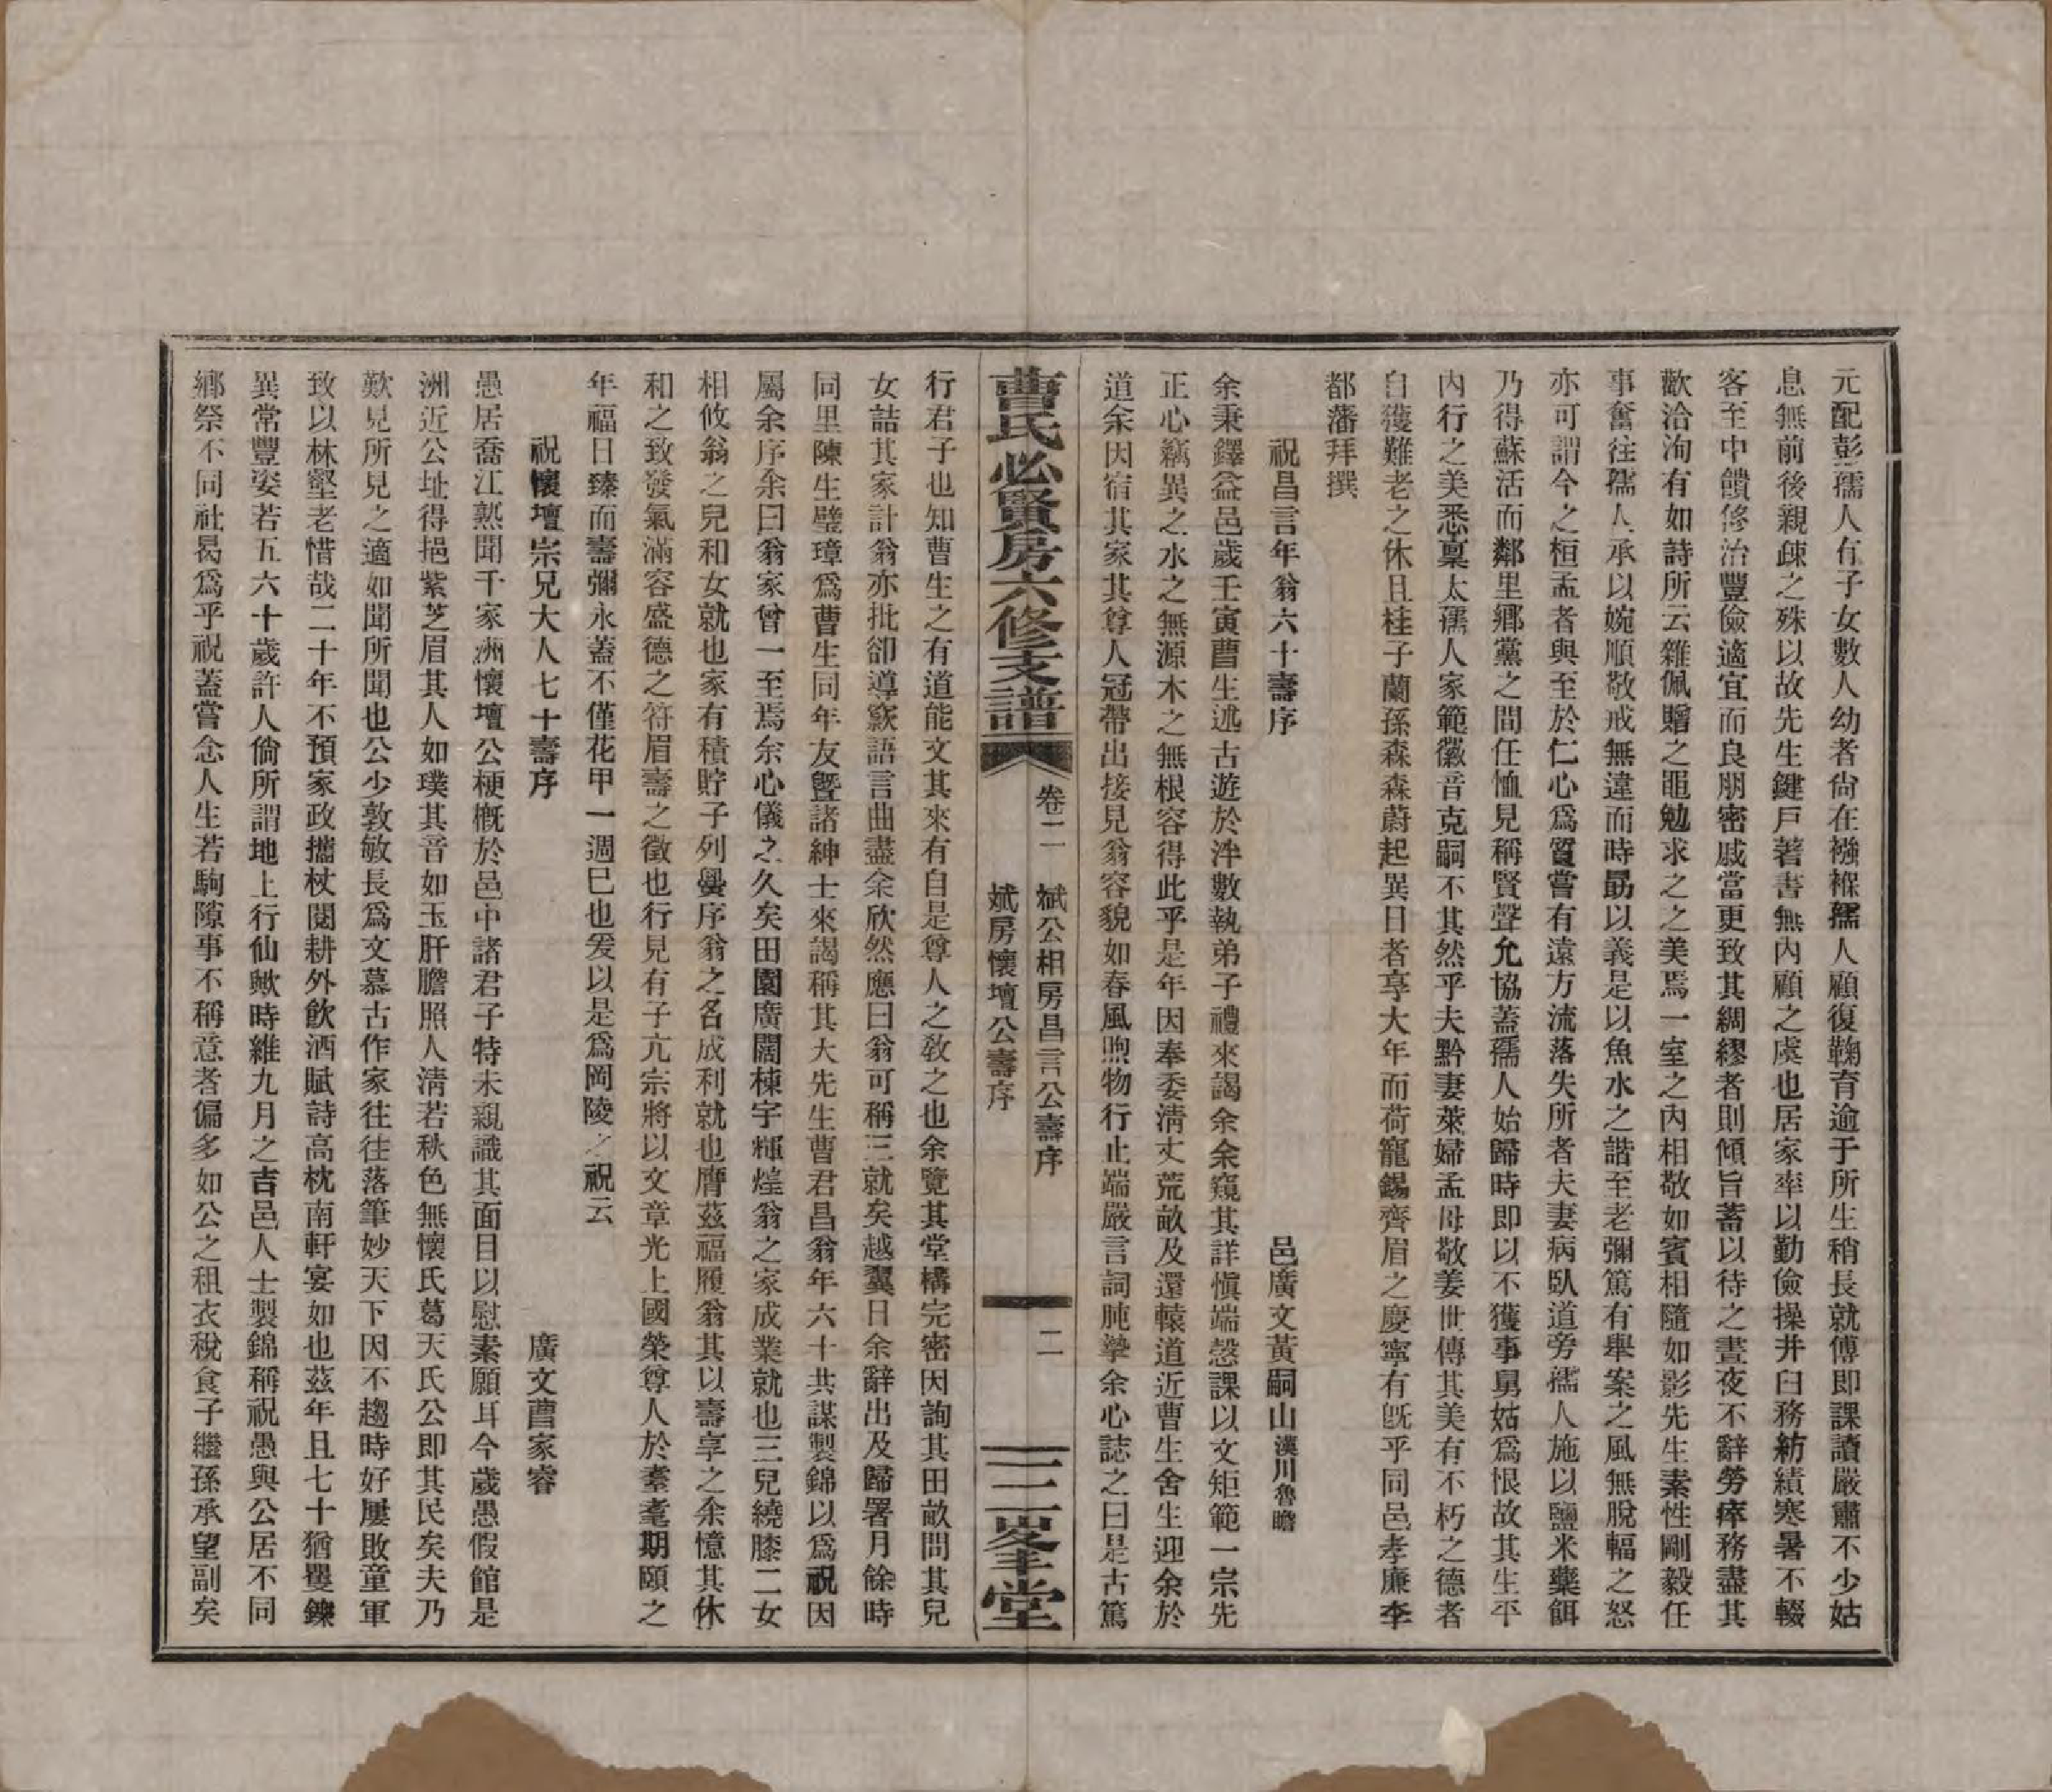 元配彭孺人有子女數人幼者尙在襁褓孺人顧復鞠育逾于所生稍長就傅即課讀嚴肅不少姑
息無前後親疎之殊以故先生鍵戶著書無內顧之虞也居家率以勤儉操井臼務紡績寒暑不輟
客至中饋修治豐儉適宜而良朋密戚當更致其綢繆者則傾旨蓄以待之晝夜不辭勞瘁務盡其
歡洽洵有如詩所云雜佩贈之黽勉求之之美焉一室之內相敬如賓相隨如影先生素性剛毅任
事奮往孺人承以婉順敬戒無違而時勗以義是以魚水之諧至老彌篤有舉案之風無脫輻之怒
亦可謂今之桓孟者與至於仁心爲質嘗有遠方流落失所者夫妻病臥道旁孺人施以鹽米藥餌
乃得蘇活而鄰里鄉黨之間任恤見稱賢聲允協蓋孺人始歸時即以不獲事舅姑爲恨故其生平
內行之美悉稟太孺人家範徽音克嗣不其然乎夫黔妻萊婦孟母敬姜世傳其美有不朽之德者
自獲難老之休且桂子蘭孫森森蔚起異日者享大年而荷寵錫齊眉之慶寧有旣乎同邑孝廉李
都藩拜撰
祝昌言年翁六十壽序　邑廣文黃嗣山漢川魯瞻
余秉鐸益邑歲壬寅曹生述古遊於泮數執弟子禮來謁余余窺其詳愼端愨課以文矩範一宗先
正心竊異之水之無源木之無根容得此乎是年因奉委淸丈荒畝及還轅道近曹生舍生迎余於
道余因宿其家其尊人冠帶出接見翁容貌如春風煦物行止端嚴言詞肫摯余心誌之曰是古篤
曹氏必賢房六修支譜
卷二　斌公相房昌言公壽序
斌房懷壇公壽序
二
行君子也知曹生之有道能文其來有自是尊人之敎之也余覽其堂構完密因詢其田畝問其兒
女詰其家計翁亦批卻導窾語言曲盡余欣然應曰翁可稱三就矣越翼日余辭出及歸署月餘時
同里陳生璧璋爲曹生同年友曁諸紳士來謁稱其大先生曹君昌翁年六十共謀製錦以爲祝因
屬余序余曰翁家曾一至焉余心儀之久矣田園廣闊棟宇輝煌翁之家成業就也三兒繞膝二女
相攸翁之兒和女就也家有積貯子列黌序翁之名成利就也膺茲福履翁其以壽享之余憶其休
和之致發氣滿容盛德之符眉壽之徵也行見有子亢宗將以文章光上國榮尊人於耋耄期頤之
年福日臻而壽彌永蓋不僅花甲一週巳也爰以是爲岡陵之祝云
祝懷壇宗兄大人七十壽序　廣文曹家睿
愚居喬江熟聞千家洲懷壇公梗槪於邑中諸君子特未親識其面目以慰素願耳今歲愚假館是
洲近公址得挹紫芝眉其人如璞其音如玉肝膽照人淸若秋色無懷氏葛天氏公即其民矣夫乃
歎見所見之適如聞所聞也公少敦敏長爲文慕古作家往往落筆妙天下因不趨時好屢敗童軍
致以林壑老惜哉二十年不預家政攜杖閱耕外飮酒賦詩高枕南軒宴如也茲年且七十猶矍鑠
異常豐姿若五六十歲許人倘所謂地上行仙歟時維九月之吉邑人士製錦稱祝愚與公居不同
鄉祭不同社曷爲乎祝蓋嘗念人生若駒隙事不稱意者偏多如公之租衣稅食子繼孫承望副矣